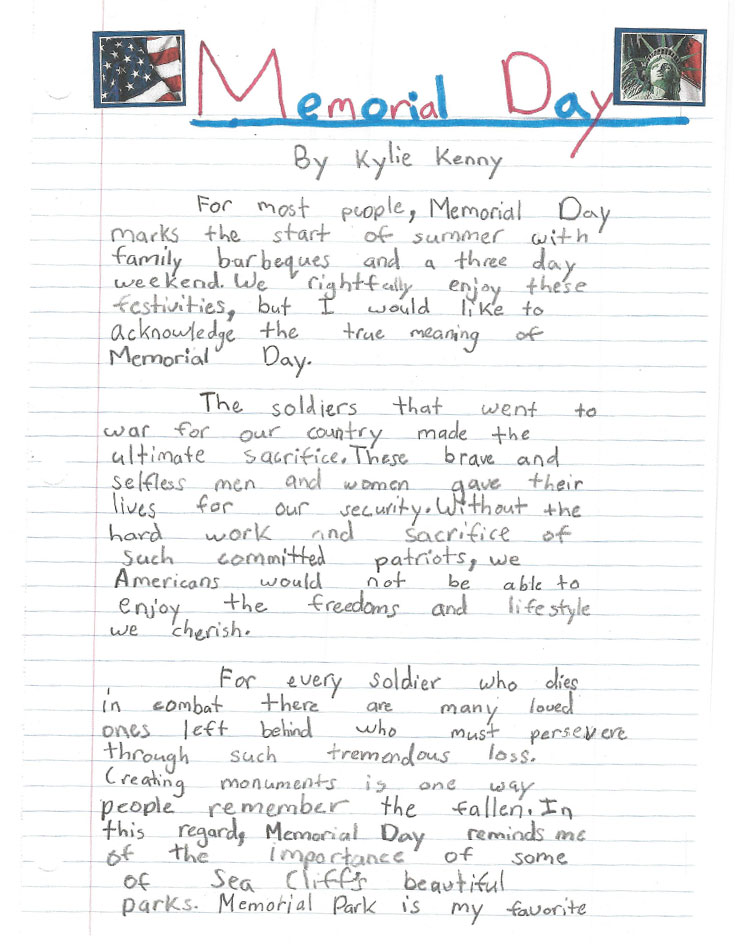 Memorial Day
By Kylie Kenny
For most people, Memorial Day
marks the start of summer with
family barbeques and a three day
weekend. We rightfully enjoy these
festivities, but I would like to
acknowledge the true meaning of
Memorial Day.
The soldiers that went to
war for our country made the
ultimate sacrifice. These brave and
selfless men and women gave their
lives for our security. Without the
hard work and sacrifice of
such committed patriots, we
Americans would not be able to
enjoy the freedoms and lifestyle
we cherish.
For every soldier who dies
in combat there are many loved
ones left behind who must persevere
through such tremendous loss.
Creating monuments is one way
people remember the fallen. In
this regard, Memorial Day reminds me
of the importance of some
of Sea Cliff's beautiful
parks. Memorial Park is my favorite